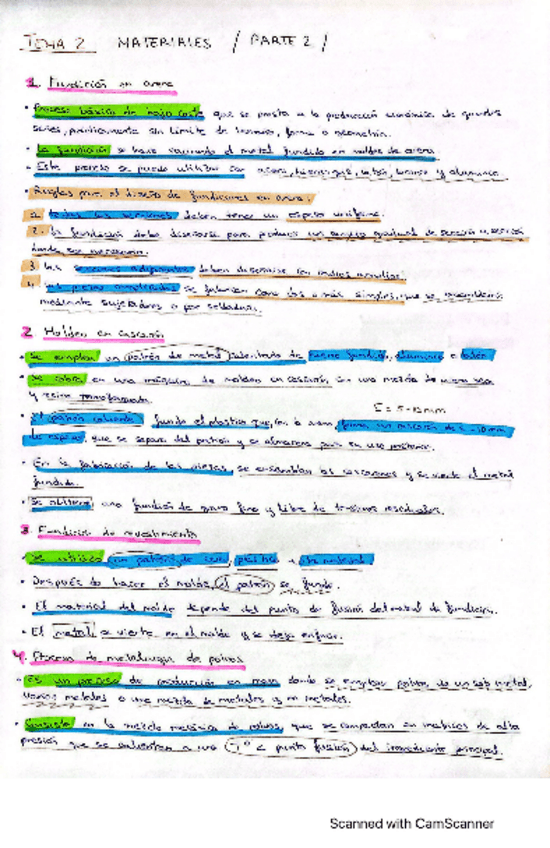 TEMA 2 MATERIALES / PARTE 2 /
1. Fundición en arena
• Proceso básico de bajo coste que se presta a la producción económica de grandes
series, prácticamente sin límite de tamaño, forma o geometría.
• La fundición se hace vaciando el metal fundido en moldes de arena
• Este proceso se puede utilizar con acero, hierro gris, latón, bronce y aluminio.
• Reglas para el diseño de fundiciones en arena:
1. todas las secciones deben tener un espesor uniforme.
2. la fundición debe diseñarse para producir un cambio gradual de sección a sección
donde sea necesario.
3. las secciones adyacentes deben diseñarse con radios amplios.
4. las piezas complicadas se fabrican como dos o más simples, que se ensamblan
mediante sujetadores o por soldadura.
2. Moldeo en cascarón
• Se emplea un patrón de metal calentado de hierro fundido, aluminio o latón.
• Se coloca en una máquina de moldeo en cascarón, con una mezcla de arena seca
y resina termoformada.
E = 5-10 mm
• El patrón caliente funde el plástico que, con la arena, forma un cascarón de 5-10 mm
de espesor, que se separa del patrón y se almacena para su uso posterior.
• En la fabricación de las piezas, se ensamblan los cascarones y se vierte el metal
fundido.
• Se obtiene una fundición de grano fino y libre de tensiones residuales.
3. Fundición de revestimiento
• Se utiliza un patrón de cera, plástico u otro material.
• Después de hacer el molde, el patrón se funde.
• El material del molde depende del punto de fusión del metal de fundición.
• El metal se vierte en el molde y se deja enfriar.
4. Proceso de metalurgia de polvos
• Es un proceso de producción en masa donde se emplean polvos de un solo metal,
varios metales o una mezcla de metales y no metales.
• Consiste en la mezcla mecánica de polvos, que se compactan en matrices de alta
presión que se calientan a una Tª < punto fusión del ingrediente principal.
Scanned with CamScanner